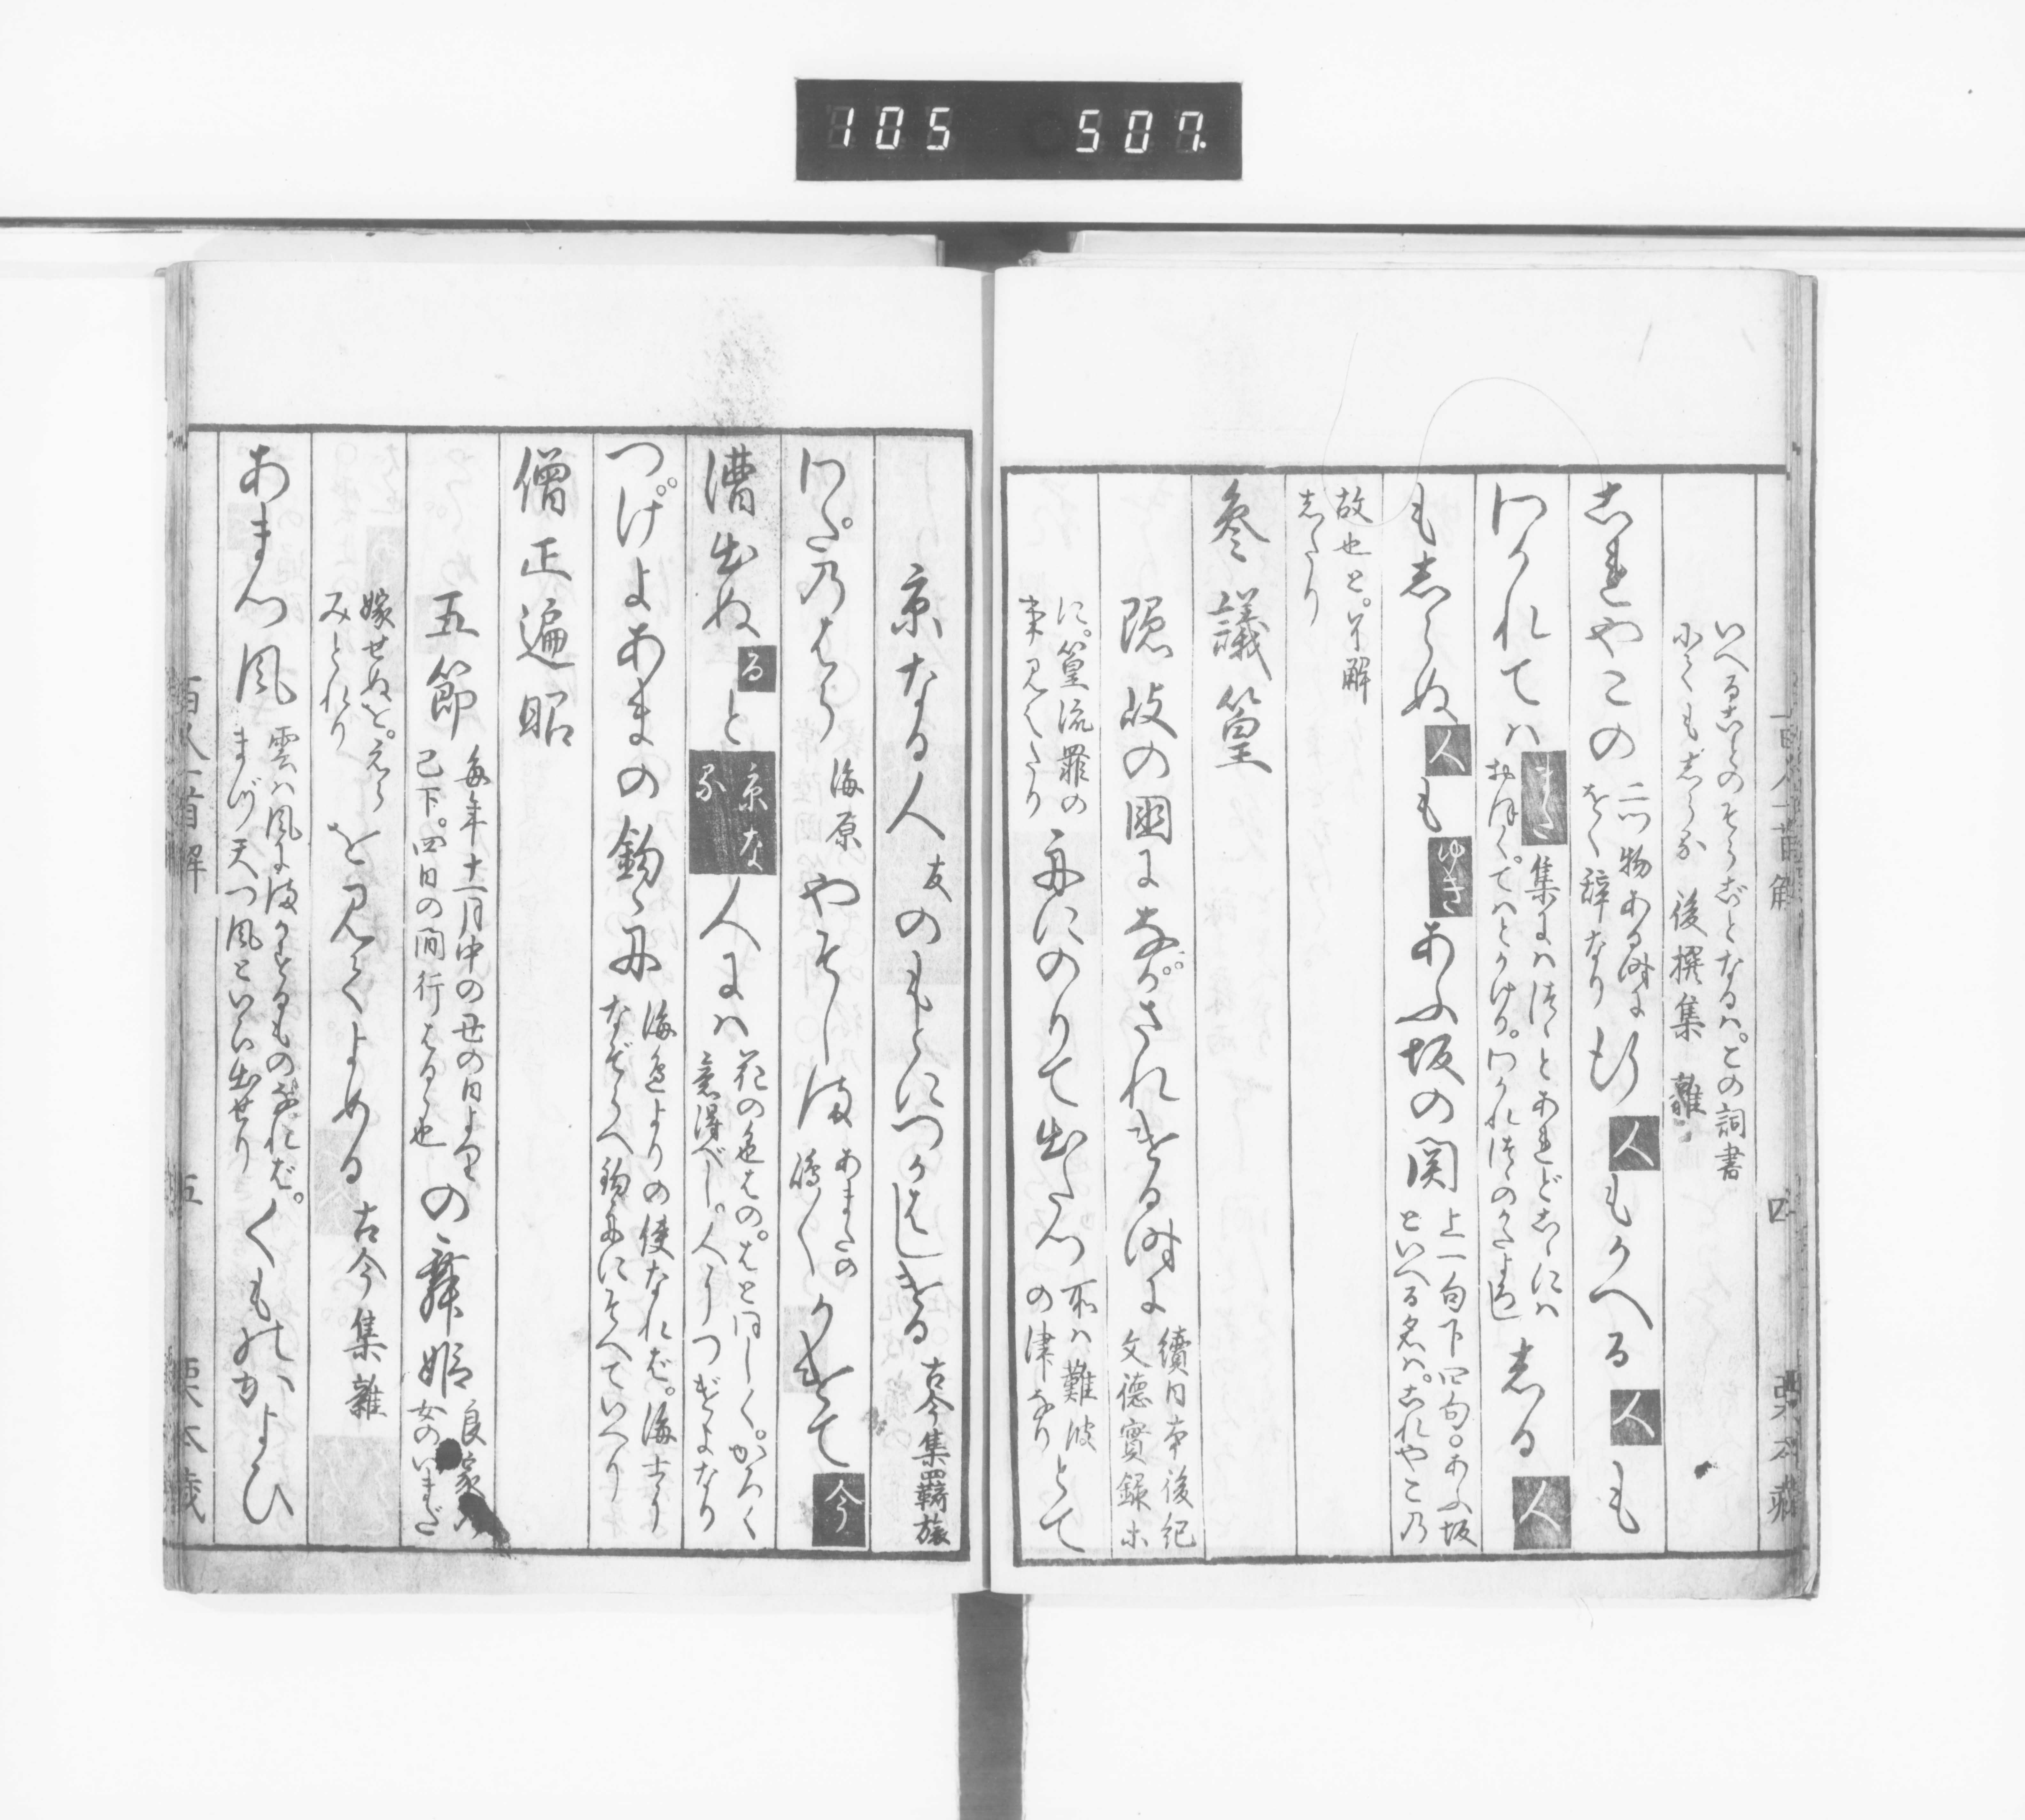 105 507.
百人一首解 四
いへるこゝのそらごとなるハ。この詞書
にてもしらる 後撰集 雜
これやこの
二ツ物ある時に
をく辞なり
行 人 もかへる 人 も
わかれてハ
集にハつゝとあれどこゝにハ
しる 人
もしらぬ 人 も ゆき あふ坂の関
上一句下四句。あふ坂
といへる名ハ。これやこの
故也と。
したり
参議篁
隠岐の國にながされける時に
續日本後紀
文德實録ホ
に。篁流罪の
事見えたり
舟にのりて出たつ
所ハ難波
の津なり
とて
京なる人
友
のもとにつかはしける
古今集羇旅
わたのはら
海原
やそしま
あまたの
嶋〱
かけて 今
漕出ぬ る と 京な る 人にハ
意得べし。人かうつげよなり
つげよあまの釣舟
海邊よりの使なれば。海士より
なぞらへ釣舟にそへていへり
僧正遍昭
五節
毎年十一月中の丑の日より
已下。四日の間行はるゝ也
の舞姫
良家の
女のいまだ
嫁せぬを。えら
みとれり
を見てよめる 古今集雜
あまつ風
雲ハ風にまかするものなれば。
まづ天つ風といひ出せり
くものかよひ
百人一首解 五